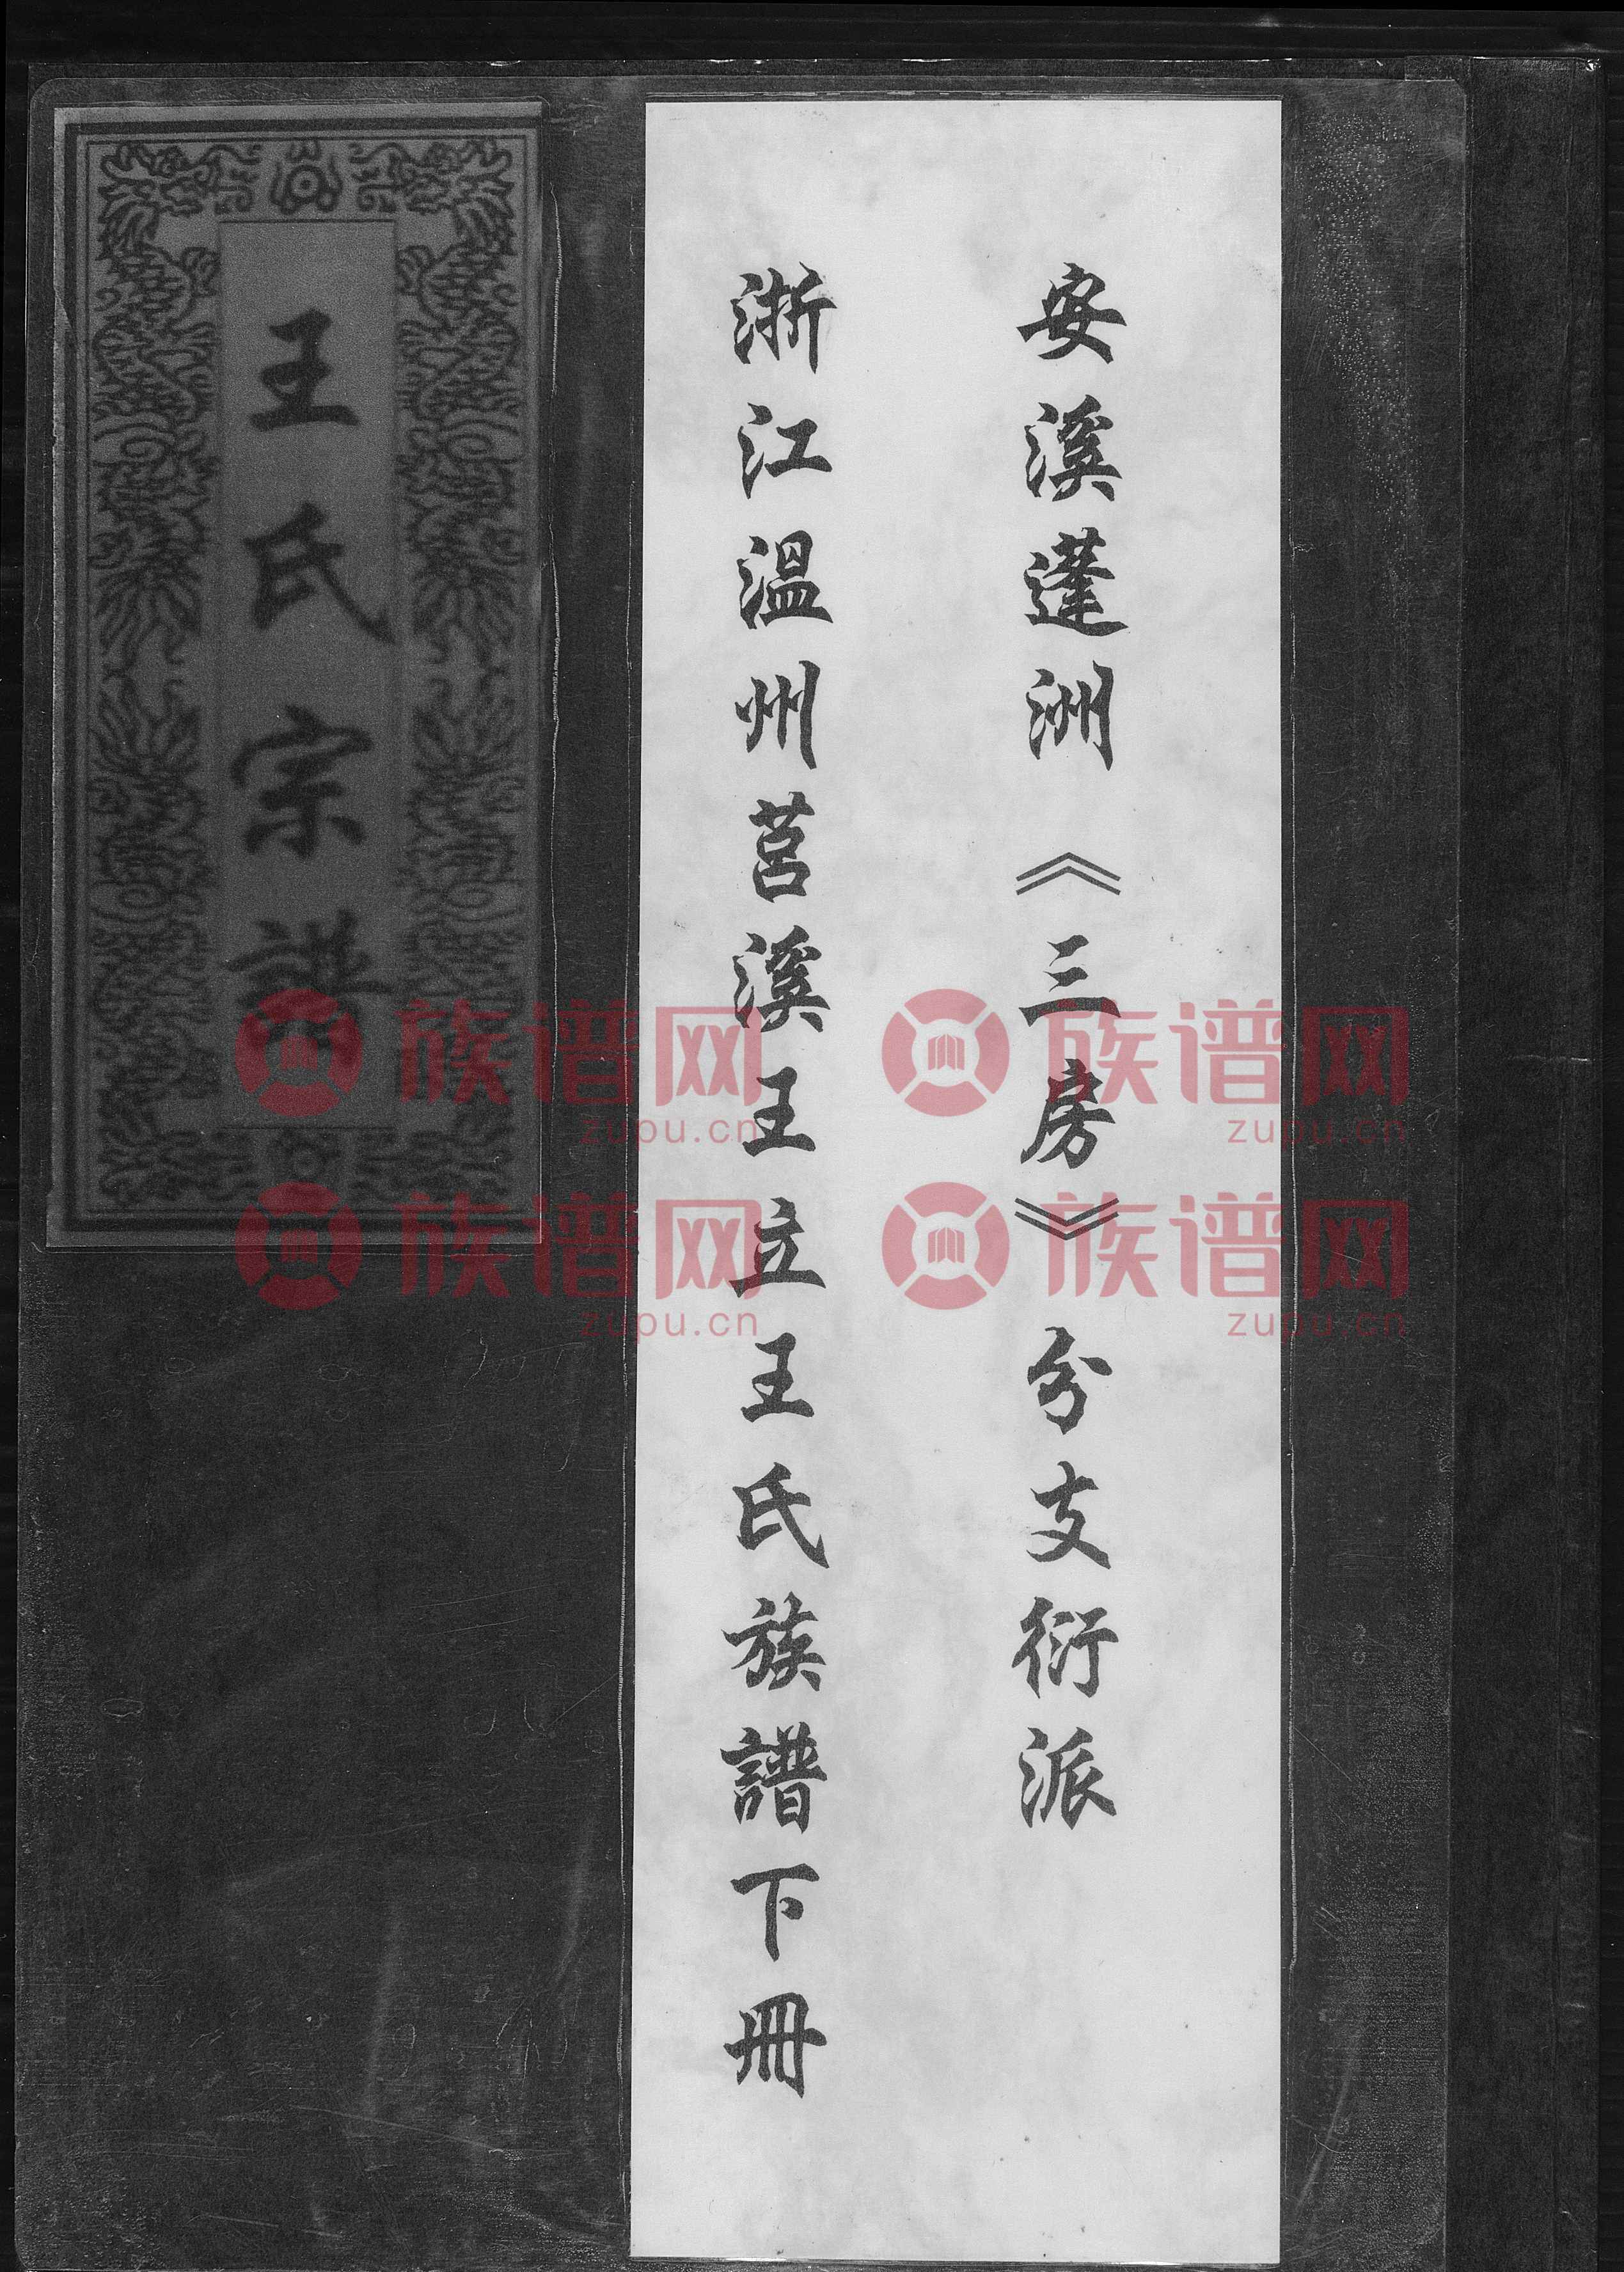 安溪蓬洲《三房》分支衍派
浙江溫州莒溪王立王氏族譜下冊
王氏宗譜
族谱网 族谱网
zupu.cn zupu.cn
族谱网 族谱网
zupu.cn zupu.cn